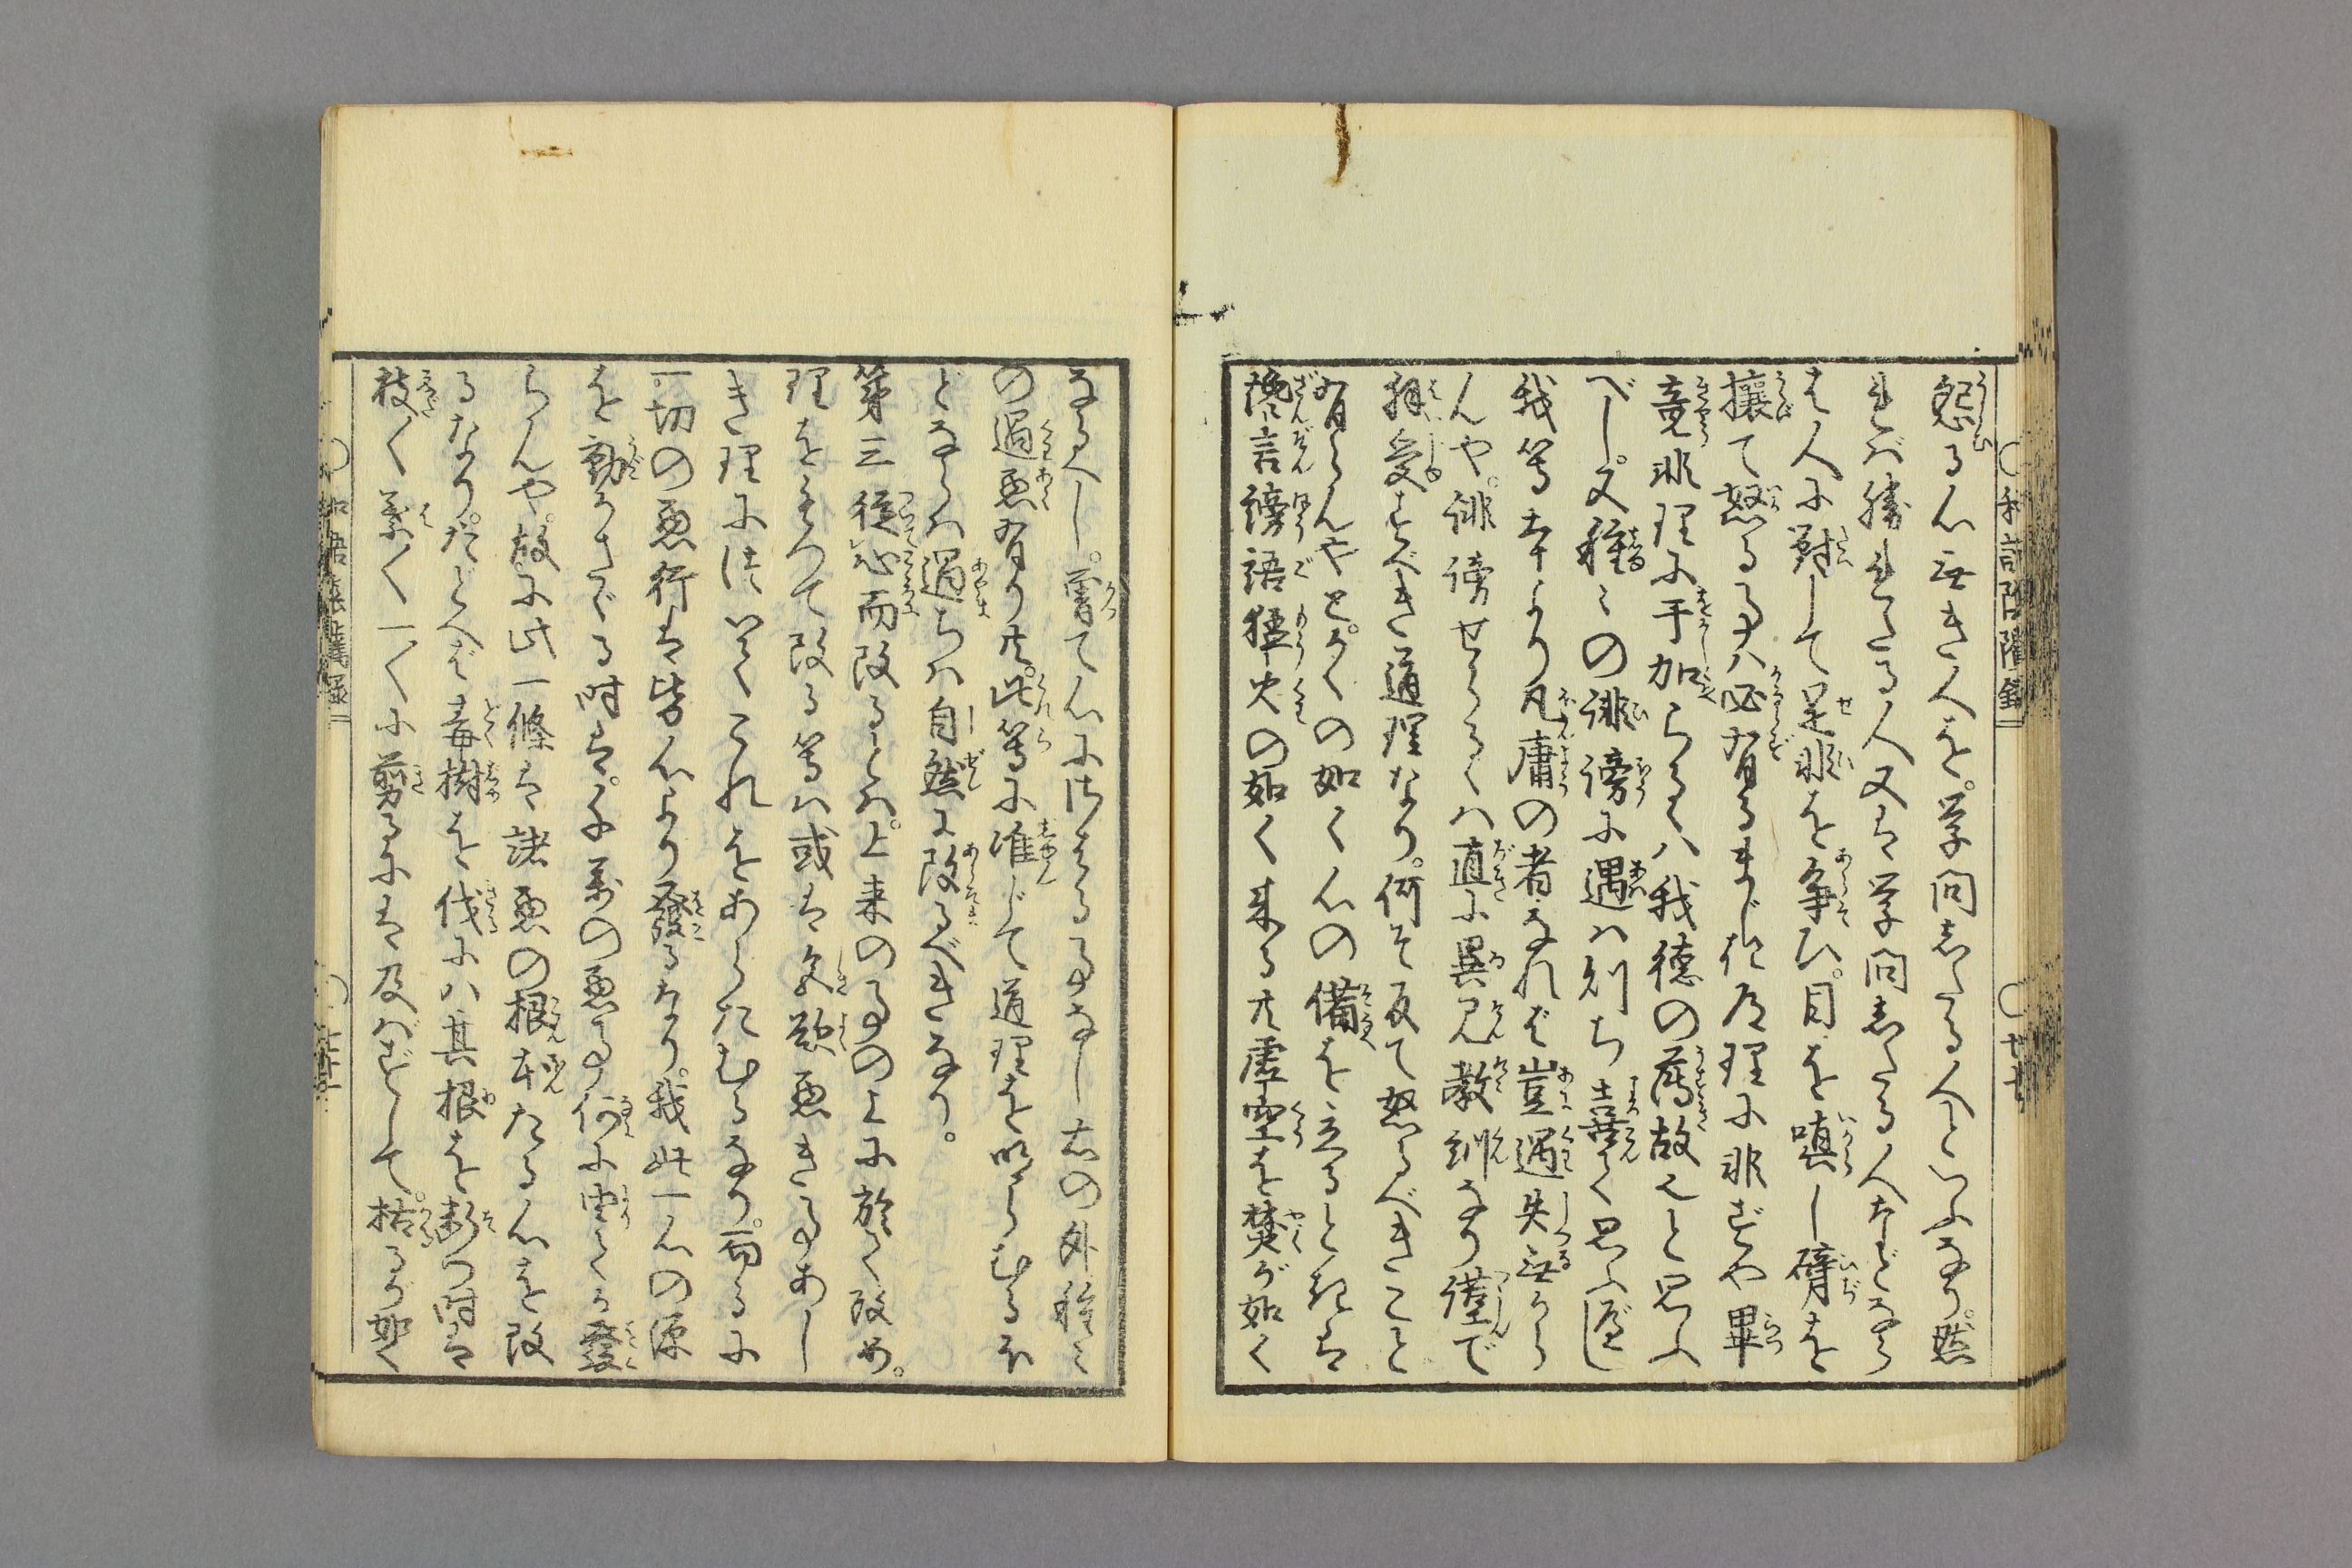 怨る心無き人を。学問志たる人といふなり。然
れば勝れたる人又は学問志たる人などなら
は人に対して是非を争ひ。目を嗔し臂を
攘て怒る事ハ必有るまじき道理に非ずや畢
竟非理に手加らるゝハ我徳の薄故と思ふ
べし。又種〻の誹謗に遇ハ則ち喜て思ふべし
我等本より凡庸の者なれば豈過失無から
んや。誹謗せらるゝハ直に異見教訓なり謹で
拝受すべき道理なり。何そ反て怒るべきこと
有らんやと。かくの如く心の備を立ると きは
讒言謗語猛火の如く来る共虚空を焚が如く
なるべし。曽て心にはさる事なし右の外種〻
の過悪有り共。此等に准じて道理を明らむるほ
どならハ過ちハ自然に改るべきなり。
第三従心而改るとハ。上来の事の上に於て改め。
理をもつて改る等ハ或は多欲悪き事あし
き理に付てこれをあらたむるなり。而るに
一切の悪行は皆心より発るなり。我此一心の源
を動かさゞる時は。千万の悪事何に由てか発
らんや。故に此一條は諸悪の根本たる心を改
るなり。たとへば毒樹を伐にハ其根を断つ時は
枝〻葉〻一〻に剪るには及ばずして。枯るが如く